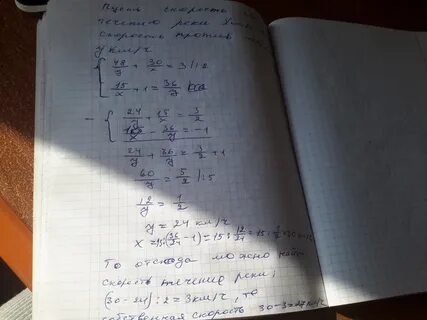 Пусть скорость
течению реки
скорость против
y км/ч
48/y + 30/x = 3 |:2
15/x + 1 = 36/y
- 24/y + 15/x = 3/2
15/x - 36/y = -1
24/y + 36/y = 3/2 + 1
60/y = 5/2 |:5
12/y = 1/2
y = 24 км/ч
x = 15:(36/24 - 1) = 15:12/24 = 15:1/2 = 30
То отсюда можно найти
скорость течение реки:
(30-24):2 = 3км/ч, то
собственная скорость 30-3=27км/ч